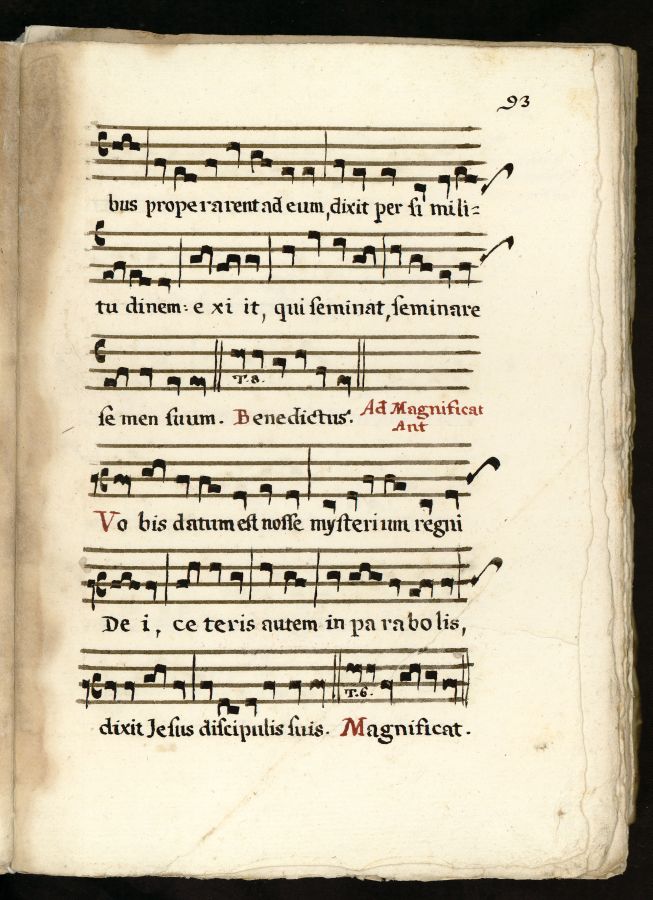 93
bus properarent ad eum, dixit per si mili=
tu dinem: e xi it, qui seminat, seminare
T. 8.
se men suum. Benedictus. Ad Magnificat
Ant
Vo bis datum est nosse mysteri um regni
De i, ce teris autem in pa rabo lis,
T. 6.
dixit Jesus discipulis suis. Magnificat.